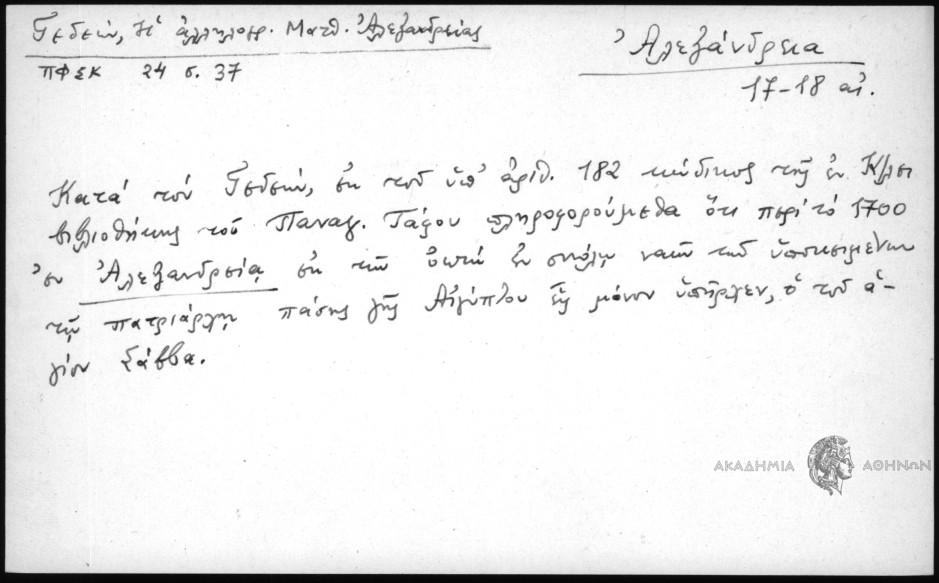 Γεδεών, Ἡ ἀλληλογρ. Ματθ. Ἀλεξανδρείας
ΠΦΣΚ 24 σ. 37
Ἀλεξάνδρεια
17-18 αἰ.
Κατά τόν Γεδεών, ἐκ τοῦ ὑπ' ἀριθ. 182 κώδικος τῆς ἐν Κ/λει
βιβλιοθήκης τοῦ Παναγ. Τάφου πληροφορούμεθα ὅτι περί τό 1700
ἐν Ἀλεξανδρείᾳ ἐκ τῶν ὀκτώ ἐν συνόλῳ ναῶν τῶν ὑποκειμένων
τῷ πατριάρχῃ πάσης γῆς Αἰγύπτου εἷς μόνον ὑπῆρχεν, ὁ τοῦ ἁ-
γίου Σάββα.
ΑΚΑΔΗΜΙΑ ΑΘΗΝΩΝ